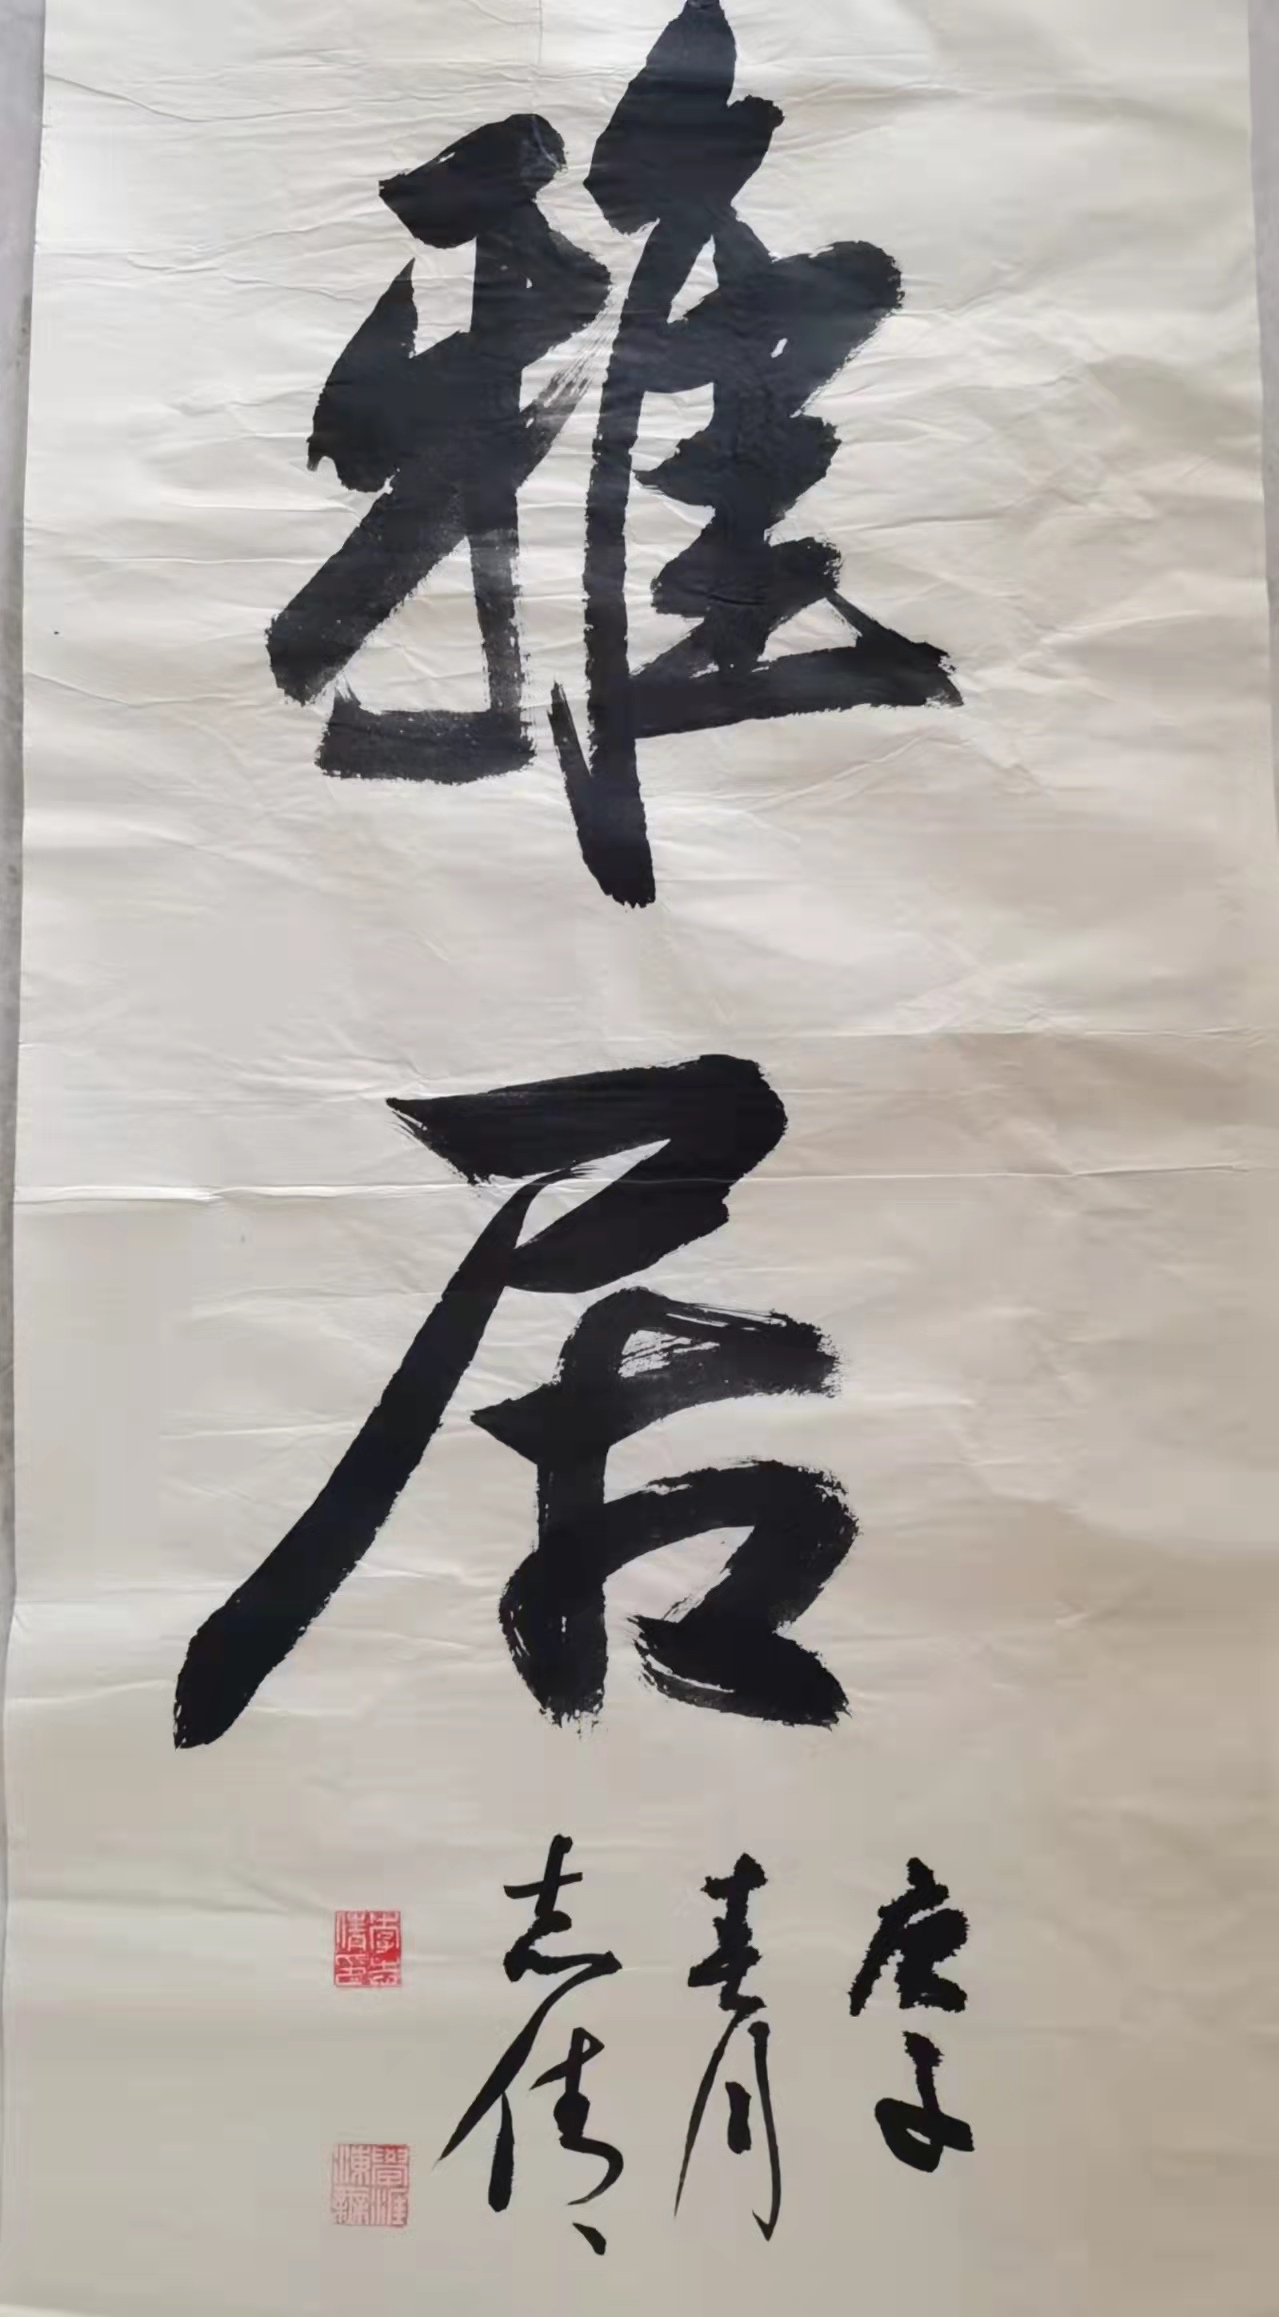 雅居
庚子
春月
志清